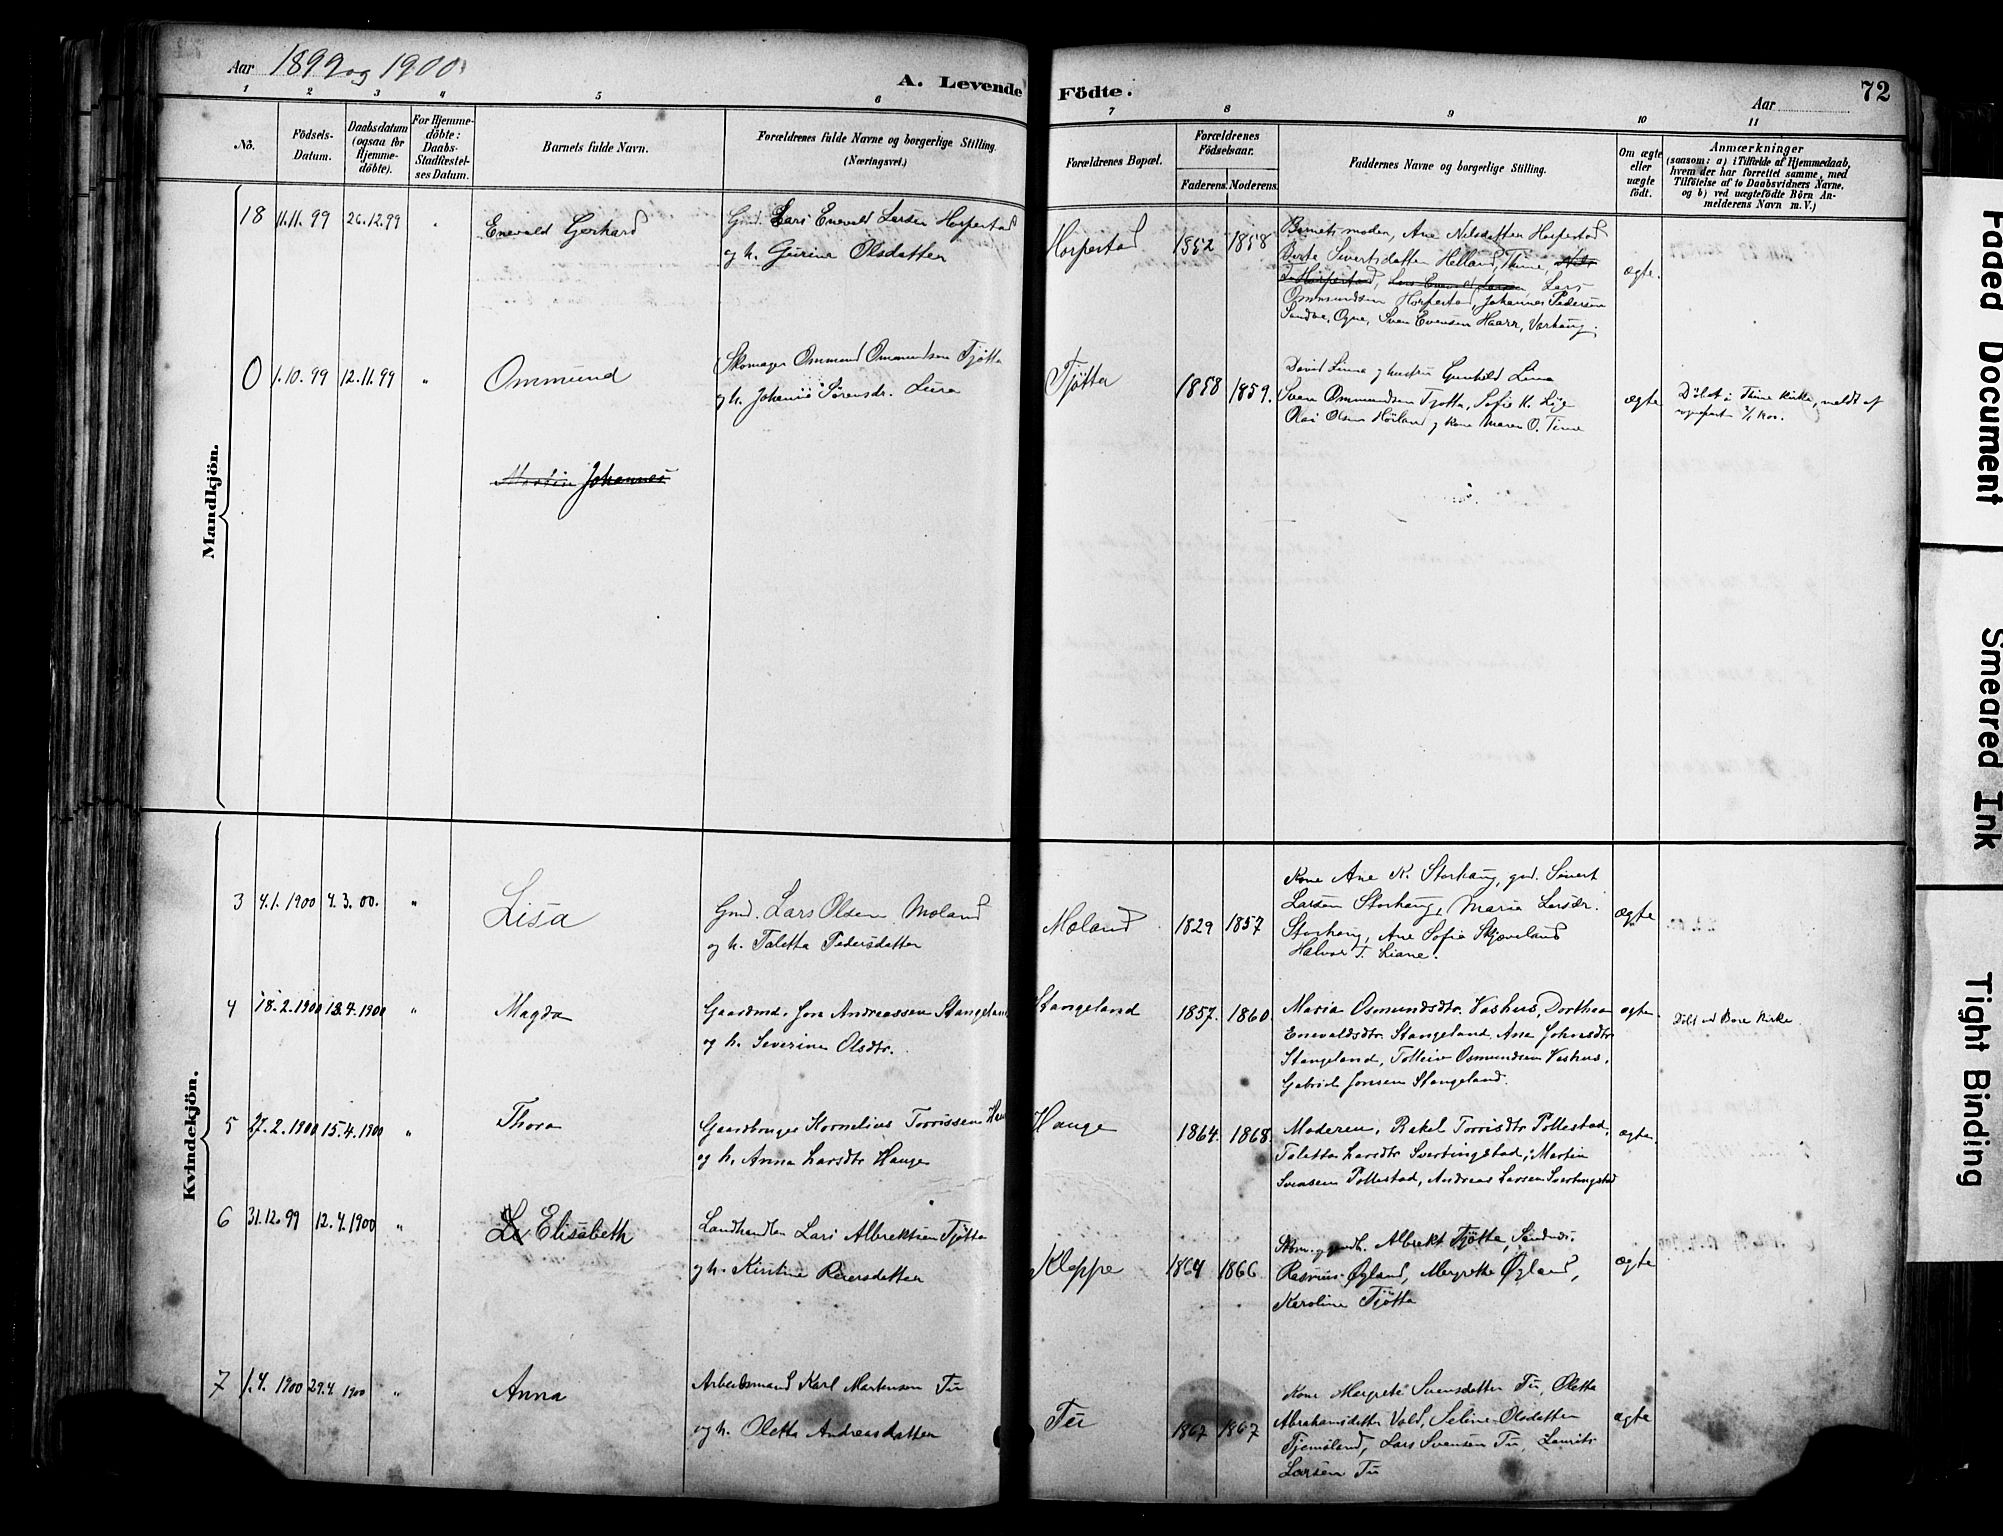 Aar 1899 og 1900.
A. Levende Födte.
Aar
72
1 2 3 4 5 6 7 8 9 10 11
No.
Födsels-Datum.
Daabsdatum (ogsaa for Hjemme-döbte).
For Hjemme-döbte: Daabs-Stadfæstel-ses Datum.
Barnets fulde Navn.
Forældrenes fulde Navne og borgerlige Stilling. (Næringsvei.)
Forældrenes Bopæl.
Forældrenes Födselsaar.
Faderens. Moderens.
Faddernes Navne og borgerlige Stilling.
Om ægte eller uægte födt.
Anmærkninger
(saasom: a) i Tilfælde af Hjemmedaab, hvem der har forrettet samme, med Tilföielse af to Daabsvidners Navne, og b) ved uægtefödte Börn An-melderens Navn m. V.)
Mandkjön.
18 11.11.99 26.12.99 " Enevald Gerhard
Gmd. Lars Enevald Larsen Horpestad
og h. Gurine Olsdatter
Horpestad 1852 1858
Barnets moder, Ane Nilsdatter Horpestad
Berta Sivertsdatter Helland, Time,
Horpestad, Lars Enevald Larsen, Lars
Ommundsen Horpestad, Johannes Pedersen
Sandve, Ogne, Sven Evensen Haarr, Varhaug.
ægte.
0 1.10.99 12.11.99 " Ommund
Skomager Ommund Ommundsen Tjøtta
og h. Johanne Sørensdr. Lura
Tjøtta 1858 1859.
David Lima og hustru Gunhild Lima
Sven Ommundsen Tjøtta, Sofie K. Lye
Olai Olsen Hörland og kone Maren O. Time
ægte
Döbt i Time kirke, meldt af
sognepr. 2/1 1900.
Martin Johannes
Kvindekjön.
3 4.1.1900 4.3.00. " Lisa
Gmd. Lars Olsen Moland
og h. Taletta Pedersdatter
Moland 1829 1857
Kone Ane N. Storhaug, gmd. Sivert
Larsen Storhaug, Maria Larsdr.
Storhaug, Ane Sofie Skjæveland
Halvor T. Liane.
ægte
4 18.2.1900 13.4.1900 " Magda
Gaardmd. Jon Andreassen Stangeland
og h. Severine Olsdtr.
Stangeland 1857. 1860.
Maria Osmundsdtr. Vashus, Dorthea
Enevaldsdtr. Stangeland, Ane Johnsdtr
Stangeland, Tolleiv Osmundsen Vashus,
Gabriel Jonsen Stangeland.
ægte.
Döbt ved Bore Kirke.
5 27.2.1900 15.4.1900 " Thora
Gaardbruger Kornelius Torrissen Hauge
og h. Anna Larsdtr Hauge
Hauge 1864. 1868.
Moderen, Rakel Torrisdtr Pollestad,
Taletta Larsdtr Svertingstad, Martin
Svensen Pollestad, Andreas Larsen Svertingstad
ægte.
6 31.12.99 12.4.1900 " Elisabeth
Landhandler Lars Albrektsen Tjøtta
og h. Kirstine Reiersdatter
Kleppe 1864 1866
Albrekt Tjøtta, Sandnes.
Rasmus Øgland, Mergrethe Øgland,
Karoline Tjøtta
ægte
7 1.4.1900 29.4.1900 " Anna
Arbeidsmand Karl Martinsen Tu
og h. Oletta Andreasdatter
Tu 1867 1867
Kone Mergrete Svensdatter Tu, Oletta
Abrahamsdatter Vold, Seline Olsdatter
Tjemsland, Lars Svensen Tu, Laurits
Larsen Tu
ægte
Faded Document
Smeared Ink
Tight Binding